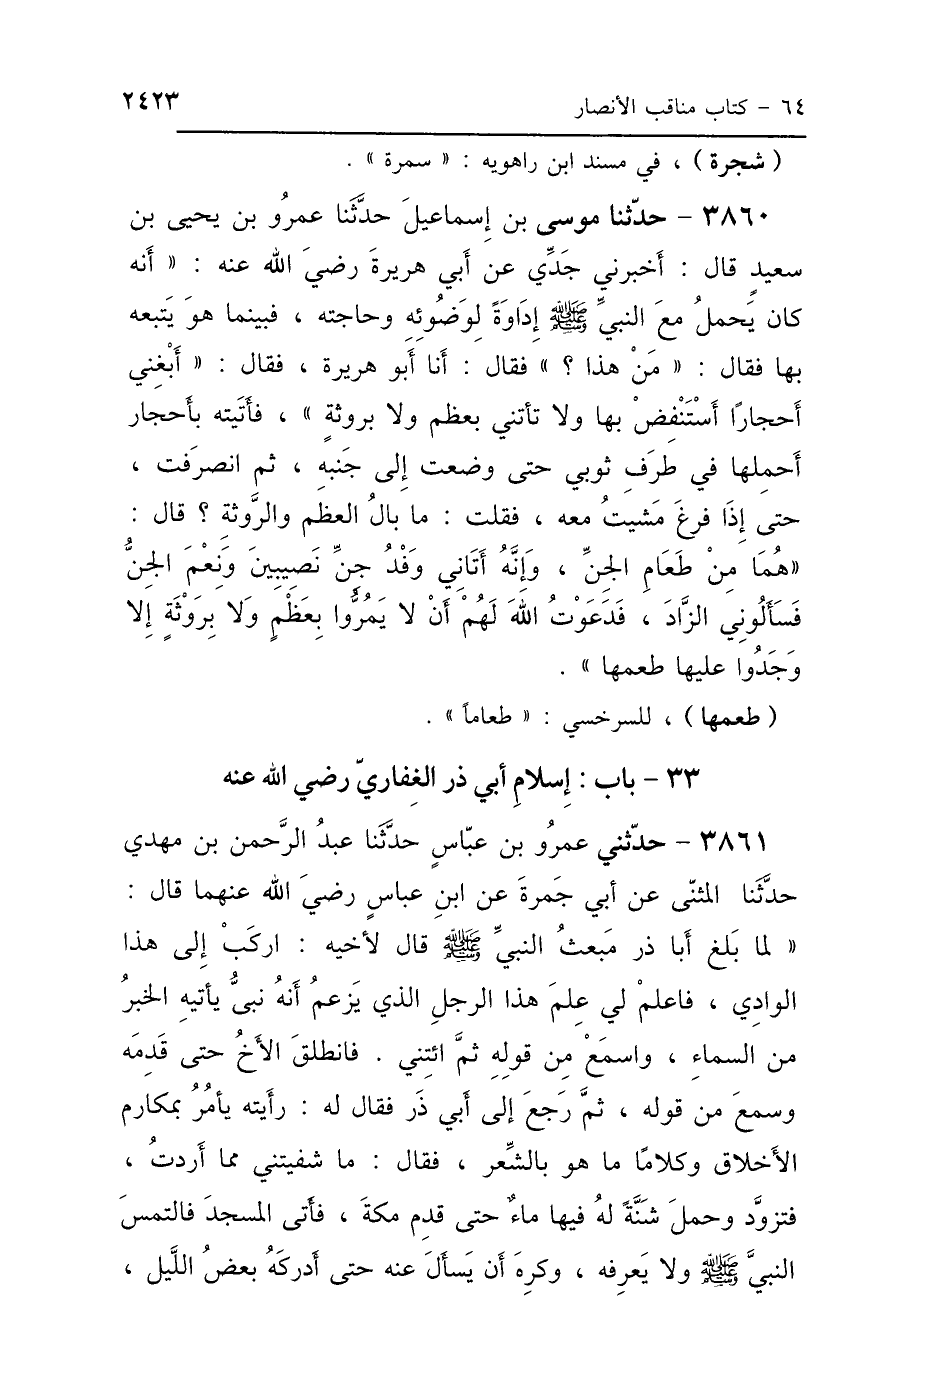 ٦٤ - كتاب مناقب الأنصار ٢٤٢٣
( شجرة ) ، في مسند ابن راهويه : « سمرة » .
٣٨٦٠ - حدّثنا موسى بن إسماعيلَ حدَّثَنا عمرُو بن يحيى بن
سعيدٍ قال : أخبرني جَدِّي عن أبي هريرةَ رضيَ الله عنه : « أنه
كان يَحملُ معَ النبيِّ ﷺ إدَاوَةً لوَضُوئِهِ وحاجته ، فبينما هوَ يَتبعه
بها فقال : « مَنْ هذا ؟ » فقال : أنا أبو هريرة ، فقال : « أَبْغِني
أحجارًا أسْتَنْفِضْ بها ولا تأتني بعظم ولا بروثةٍ » ، فأتَيته بأحجار
أحمِلها في طرَفِ ثوبي حتى وضعت إلى جَنبهِ ، ثم انصرَفت ،
حتى إذَا فرغَ مَشيتُ معه ، فقلت : ما بالُ العظَم والرَّوثةِ ؟ قال :
«هُمَا مِنْ طَعَامِ الجِنِّ ، وَإِنَّهُ أَتَاني وَفْدُ جِنِّ نَصِيبِينَ وَنِعْمَ الجِنُّ
فَسَأَلُوني الزَّادَ ، فَدَعَوْتُ اللهَ لَهُمْ أَنْ لا يَمُرُّوا بِعَظْمٍ وَلا بِرَوْثَةٍ إلا
وَجَدُوا عليها طعمها » .
( طعمها ) ، للسرخسي : « طعاماً » .
٣٣ - باب : إسلامِ أبي ذر الغِفاريّ رضي الله عنه
٣٨٦١ - حدّثني عمرُو بن عبّاسٍ حدَّثَنا عبدُ الرَّحمن بن مهدي
حدَّثَنا المثنّى عن أبي جَمرةَ عن ابنِ عباسٍ رضيَ الله عنهما قال :
« لما بَلغ أبا ذر مَبعثُ النبيِّ ﷺ قال لأخيه : اركَبْ إلى هذا
الوادِي ، فاعلمْ لي عِلمَ هذا الرجلِ الذي يَزعمُ أنهُ نبيُّ يأتيهِ الخبرُ
من السماءِ ، واسمَعْ مِن قولِهِ ثمَّ ائتِني . فانطلقَ الأخُ حتى قَدِمَه
وسمعَ من قوله ، ثمَّ رَجعَ إلى أبي ذَر فقال له : رأيته يأمُرُ بمكارم
الأخلاق وكلامًا ما هو بالشِّعر ، فقال : ما شفيتني مما أردتُ ،
فتزودَّ وحملَ شَنَّةً لهُ فيها ماءٌ حتى قدِم مكةَ ، فأتى المسجدَ فالتمسَ
النبيَّ ﷺ ولا يَعرِفه ، وكرِهَ أن يَسألَ عنه حتى أدركَهُ بعضُ اللَّيل ،